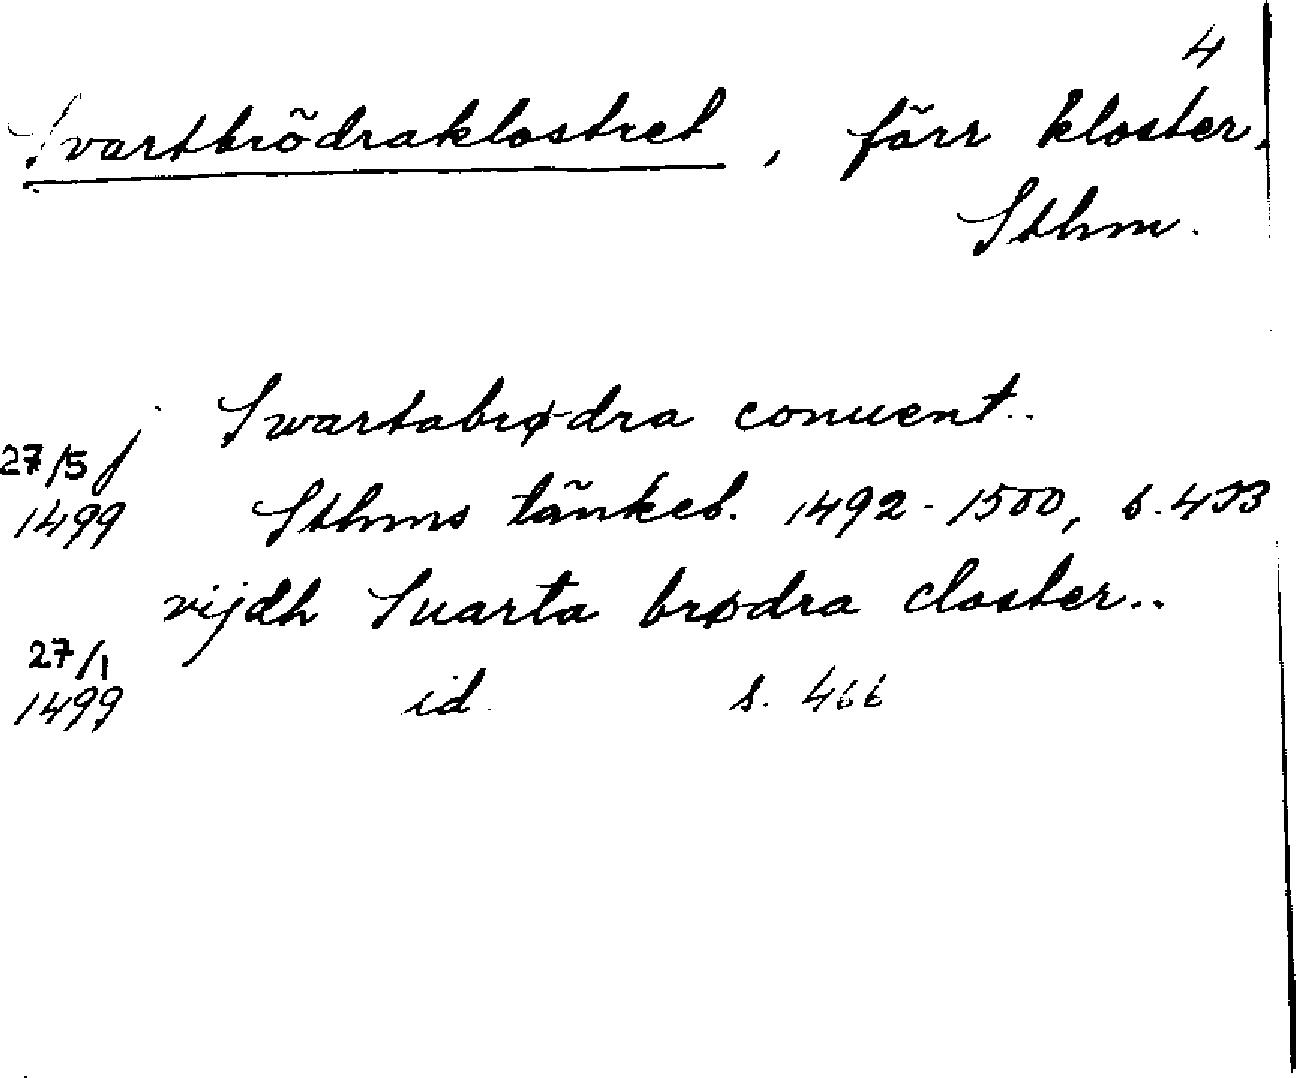 4
Svartbrödraklostret, förr kloster,
Sthm.
j Swartabrødra conuent..
27/5
1499 Sthms tänkeb. 1492-1500, s. 433
vijdh Suarta brødra closter..
27/1
1499 id. s. 466